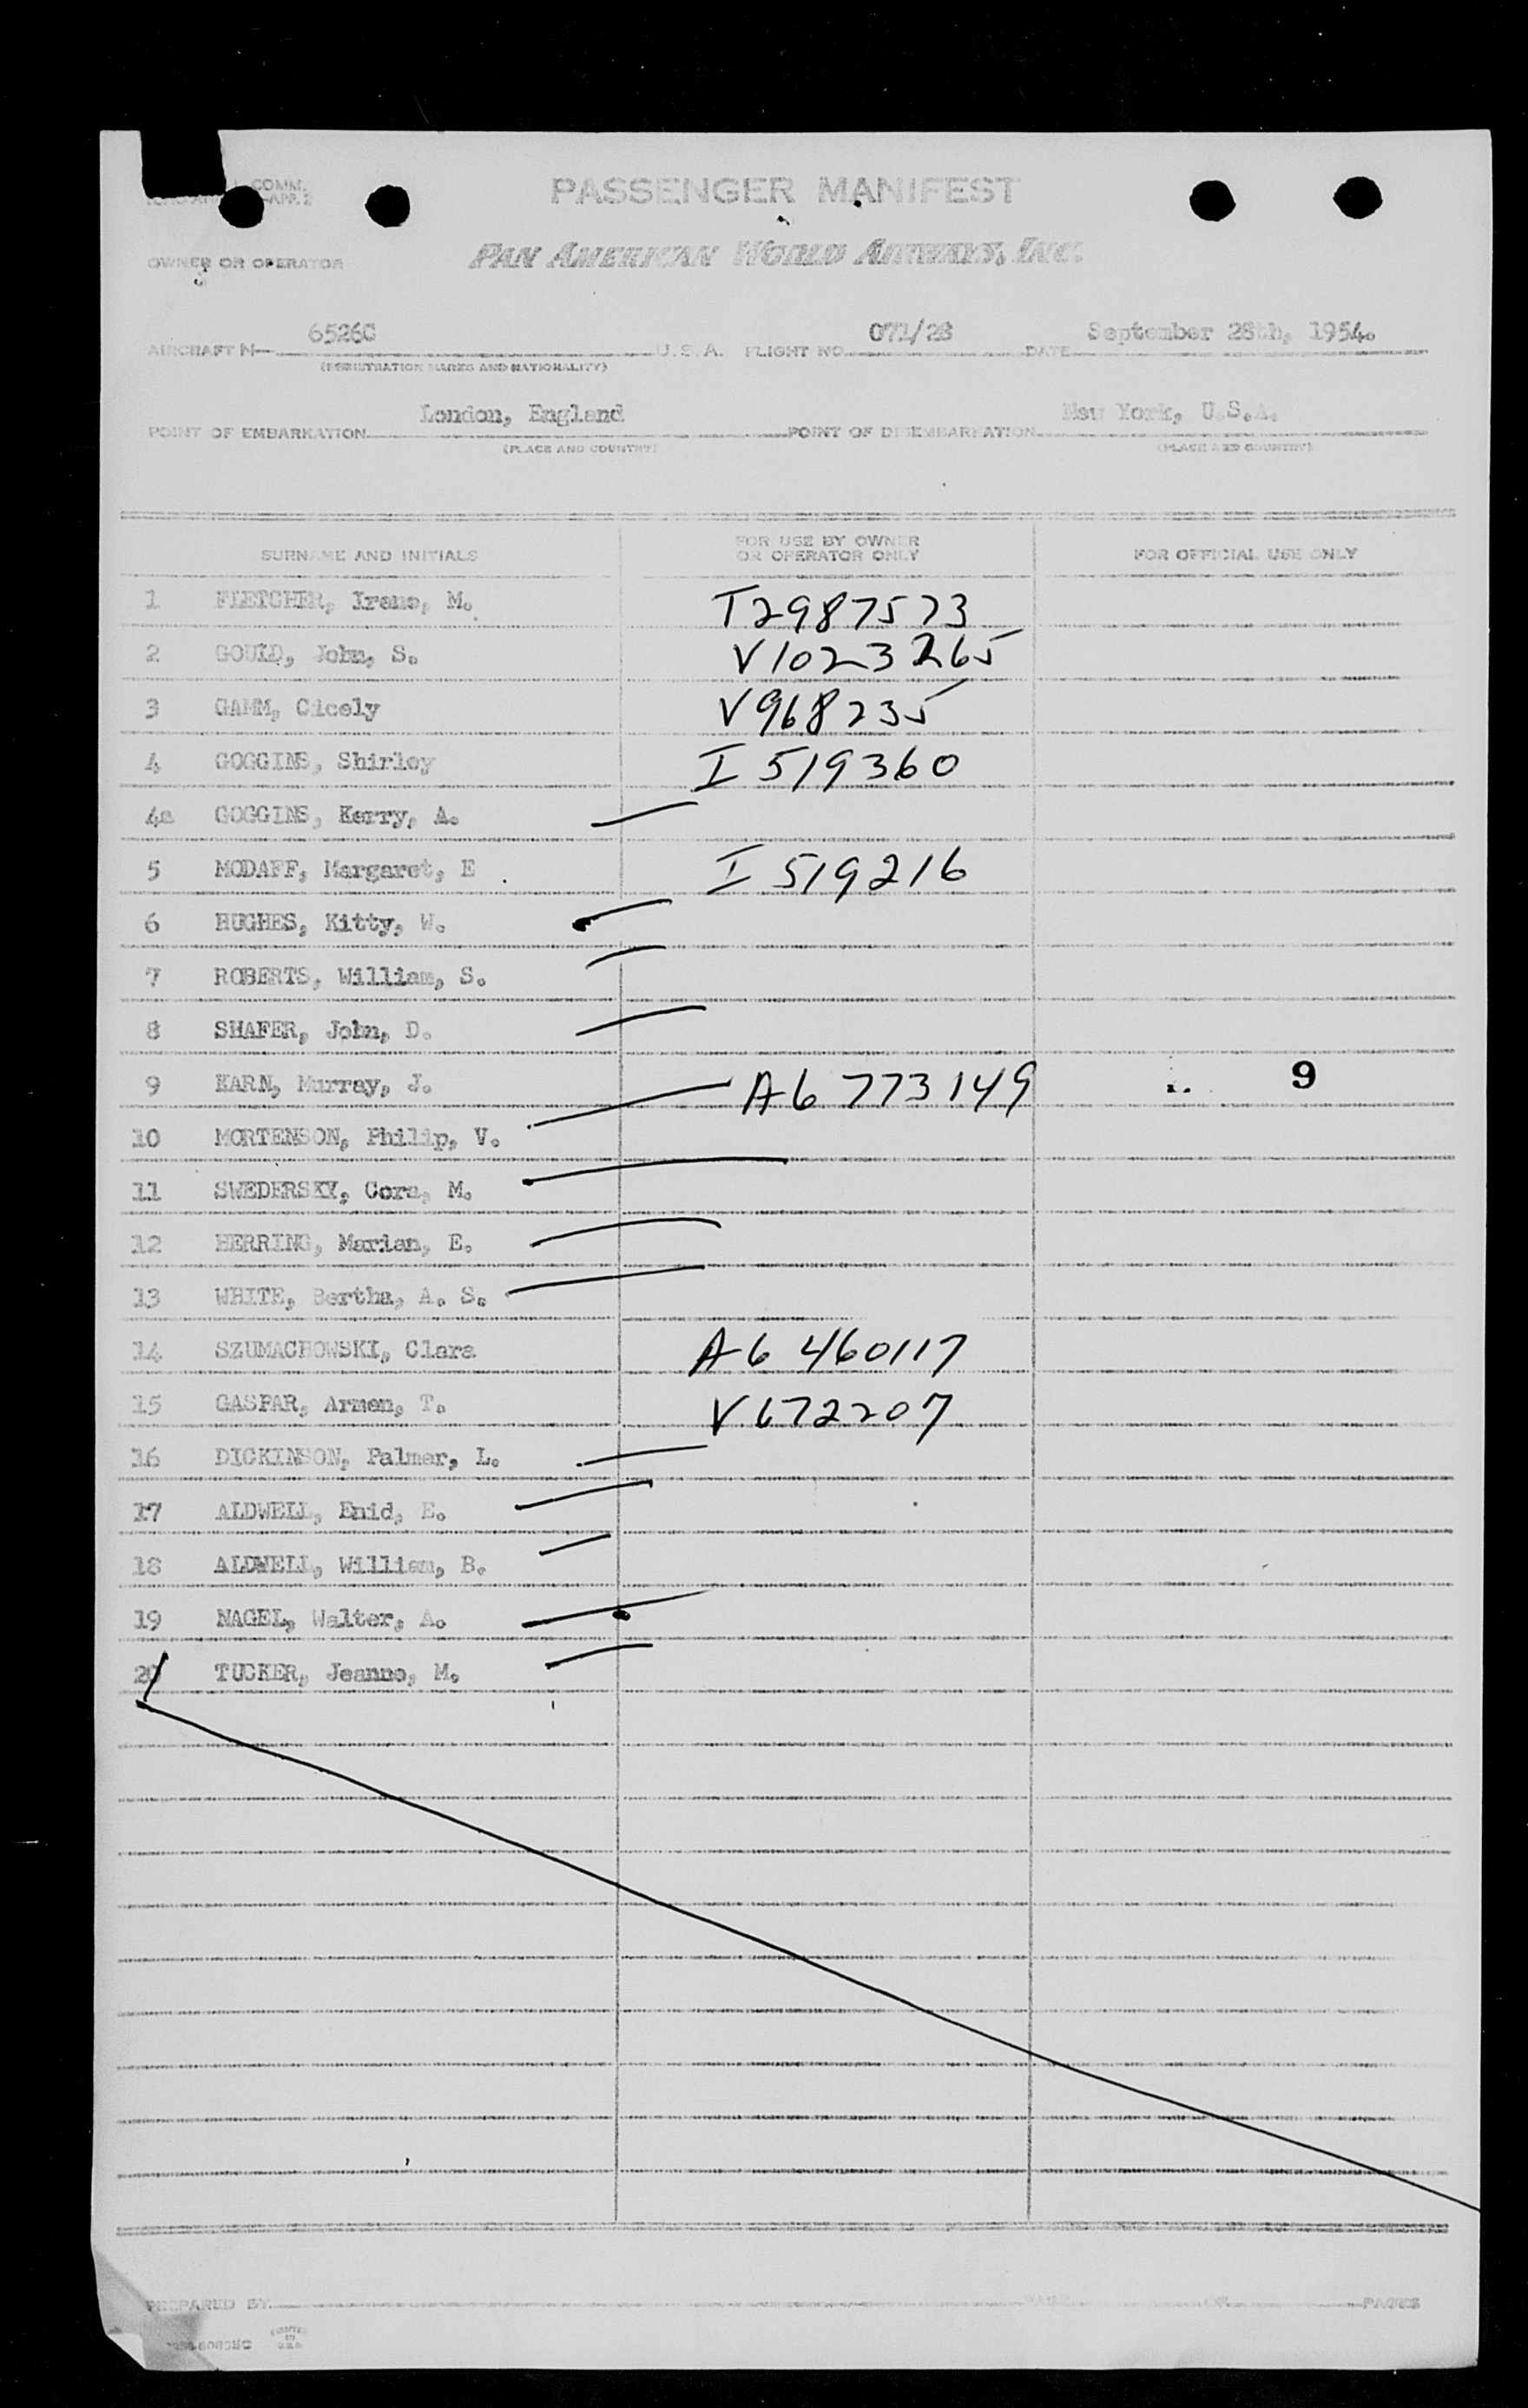 COMM.
APP. 2
PASSENGER MANIFEST
OWNER OR OPERATOR PAN AMERICAN WORLD AIRWAYS, INC.
AIRCRAFT N 6526C U. S. A. FLIGHT NO. 071/28 DATE September 28th, 1954.
(REGISTRATION MARKS AND NATIONALITY)
POINT OF EMBARKATION London, England POINT OF DISEMBARKATION New York, U.S.A.
(PLACE AND COUNTRY) (PLACE AND COUNTRY)
SURNAME AND INITIALS FOR USE BY OWNER OR OPERATOR ONLY FOR OFFICIAL USE ONLY
1 FLETCHER, Irene, M. T2987573
2 GOULD, John, S. V1023265
3 GAMM, Cicely V968235
4 GOGGINS, Shirley I 519360
4a GOGGINS, Kerry, A.
5 MODAFF, Margaret, E I 519216
6 HUGHES, Kitty, W.
7 ROBERTS, William, S.
8 SHAFER, John, D.
9 KARN, Murray, J. A6 773149 9
10 MORTENSON, Philip, V.
11 SWEDERSKY, Cora, M.
12 HERRING, Marian, E.
13 WHITE, Bertha, A. S.
14 SZUMACHOWSKI, Clara A6 460117
15 GASPAR, Armen, T. V672207
16 DICKINSON, Palmer, L.
17 ALDWELL, Enid, E.
18 ALDWELL, William, B.
19 NAGEL, Walter, A.
20 TUCKER, Jeanne, M.
PREPARED BY PAGES